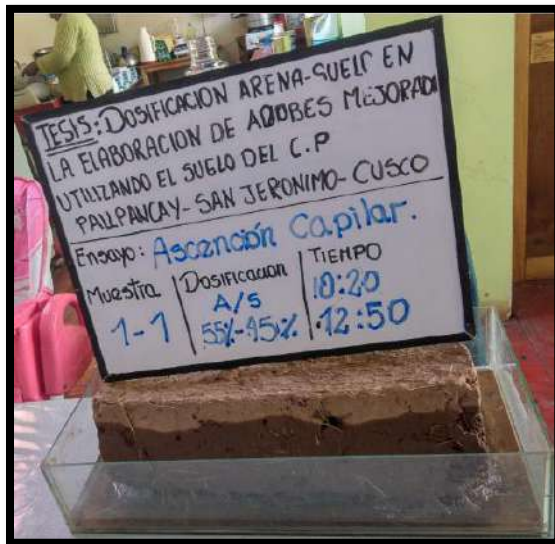 TESIS: DOSIFICACION ARENA-SUELO EN
LA ELABORACION DE ADOBES MEJORADO
UTILIZANDO EL SUELO DEL C.P
PALLPANCAY-SAN JERONIMO-CUSCO
Ensayo: Ascención Capilar.
Muestra Dosificacion TIEMPO
A/S 10:20
1-1 55%-45% 12:50